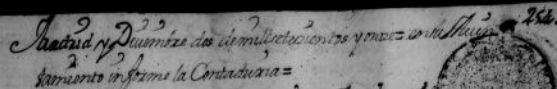 Madrid y Diciembre dos de mill setecientos y onze = con su Maun
tamiento informe la Contaduria =
254